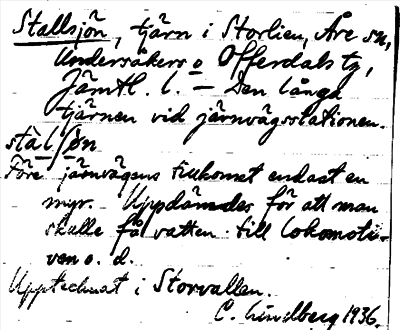 Stallsjön, tjärn i Storlien, Åre sn,
Undersåkers o Offerdals tg,
Jämtl. l. — Den långa
tjärnen vid järnvägsstationen.
stàlʃøn
Före järnvägens tillkomst endast en
myr. Uppdämdes för att man
skulle få vatten till lokomoti-
ven o. d.
Upptecknat i Storvallen.
C. Lindberg 1936.